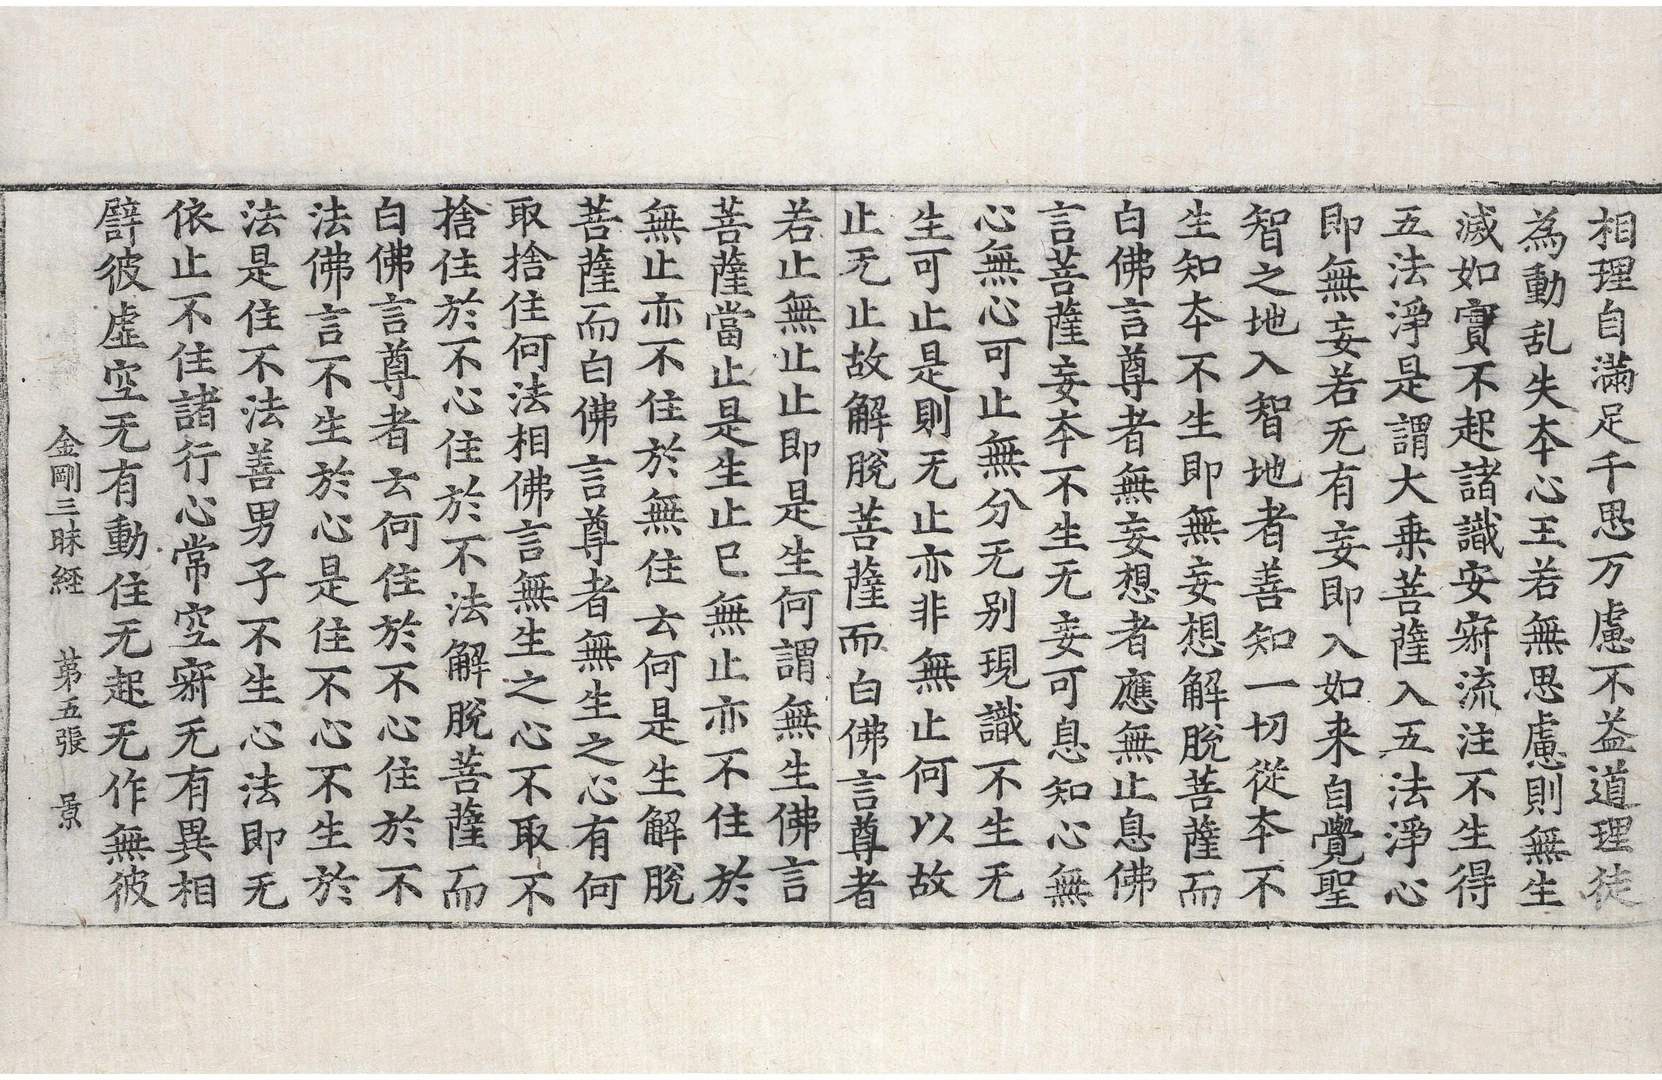 相理自滿足千思万慮不益道理徒
為動乱失本心王若無思慮則無生
滅如實不起諸識安寂流注不生得
五法淨是謂大乗菩薩入五法淨心
即無妄若无有妄即入如来自覺聖
智之地入智地者善知一切從本不
生知本不生即無妄想解脫菩薩而
白佛言尊者無妄想者應無止息佛
言菩薩妄本不生无妄可息知心無
心無心可止無分无别現識不生无
生可止是則无止亦非無止何以故
止无止故解脫菩薩而白佛言尊者
若止無止止即是生何謂無生佛言
菩薩當止是生止已無止亦不住於
無止亦不住於無住云何是生解脫
菩薩而白佛言尊者無生之心有何
取捨住何法相佛言無生之心不取不
捨住於不心住於不法解脫菩薩而
白佛言尊者云何住於不心住於不
法佛言不生於心是住不心不生於
法是住不法善男子不生心法即无
依止不住諸行心常空寂无有異相
譬彼虛空无有動住无起无作無彼
金剛三昧経 苐五張 景